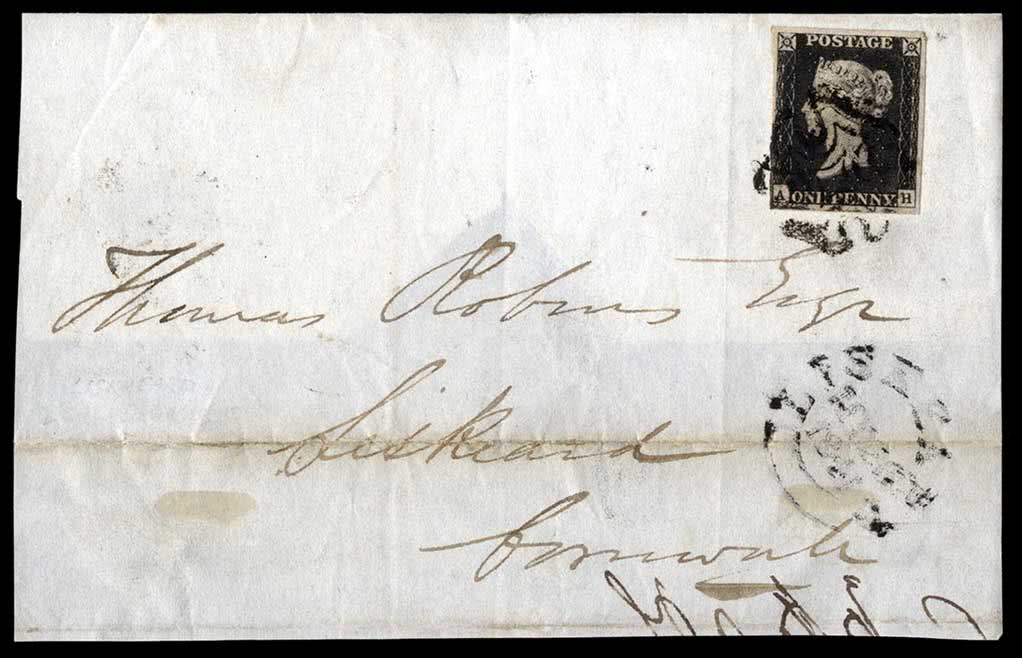 POSTAGE
A ONE PENNY H
Thomas Robins Esqr
Liskeard
Cornwall